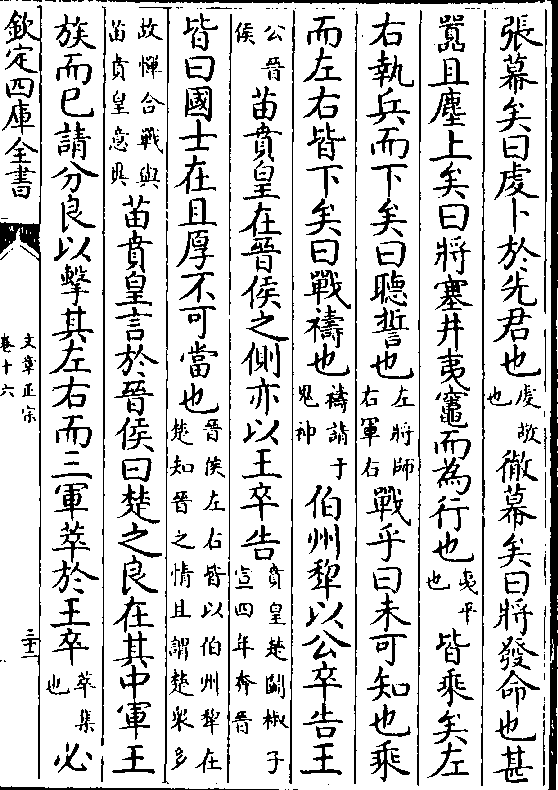 張幕矣曰虔卜於先君也虔敬也徹幕矣曰將發命也甚
囂且塵上矣曰將塞井夷竈而為行也夷平也皆乘矣左
右執兵而下矣曰聽誓也左將師右軍右戰乎曰未可知也乘
而左右皆下矣曰戰禱也禱請于鬼神伯州犂以公卒告王
公晉侯苗賁皇在晉侯之側亦以王卒告賁皇楚鬭椒子宣四年奔晉
皆曰國士在且厚不可當也晉侯左右皆以伯州犂在楚知晉之情且謂楚衆多
故憚合戰與苗賁皇意異苗賁皇言於晉侯曰楚之良在其中軍王
族而已請分良以擊其左右而三軍萃於王卒萃集也必
欽定四庫全書
文章正宗
卷十六